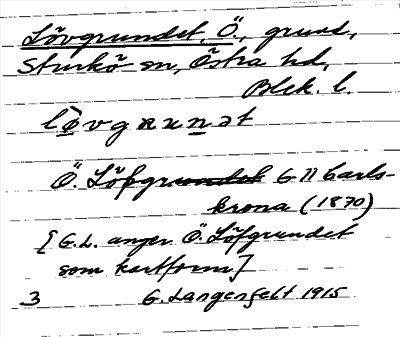 Lövgrundet, Ö., grund,
Sturkö sn, Östra hd,
Blek. l.
lòvgrunət
Ö. Löfgrundet G II Carls-
krona (1870)
[G.L. anger Ö. Löfgrundet
som kartform]
3 G. Langenfelt 1915